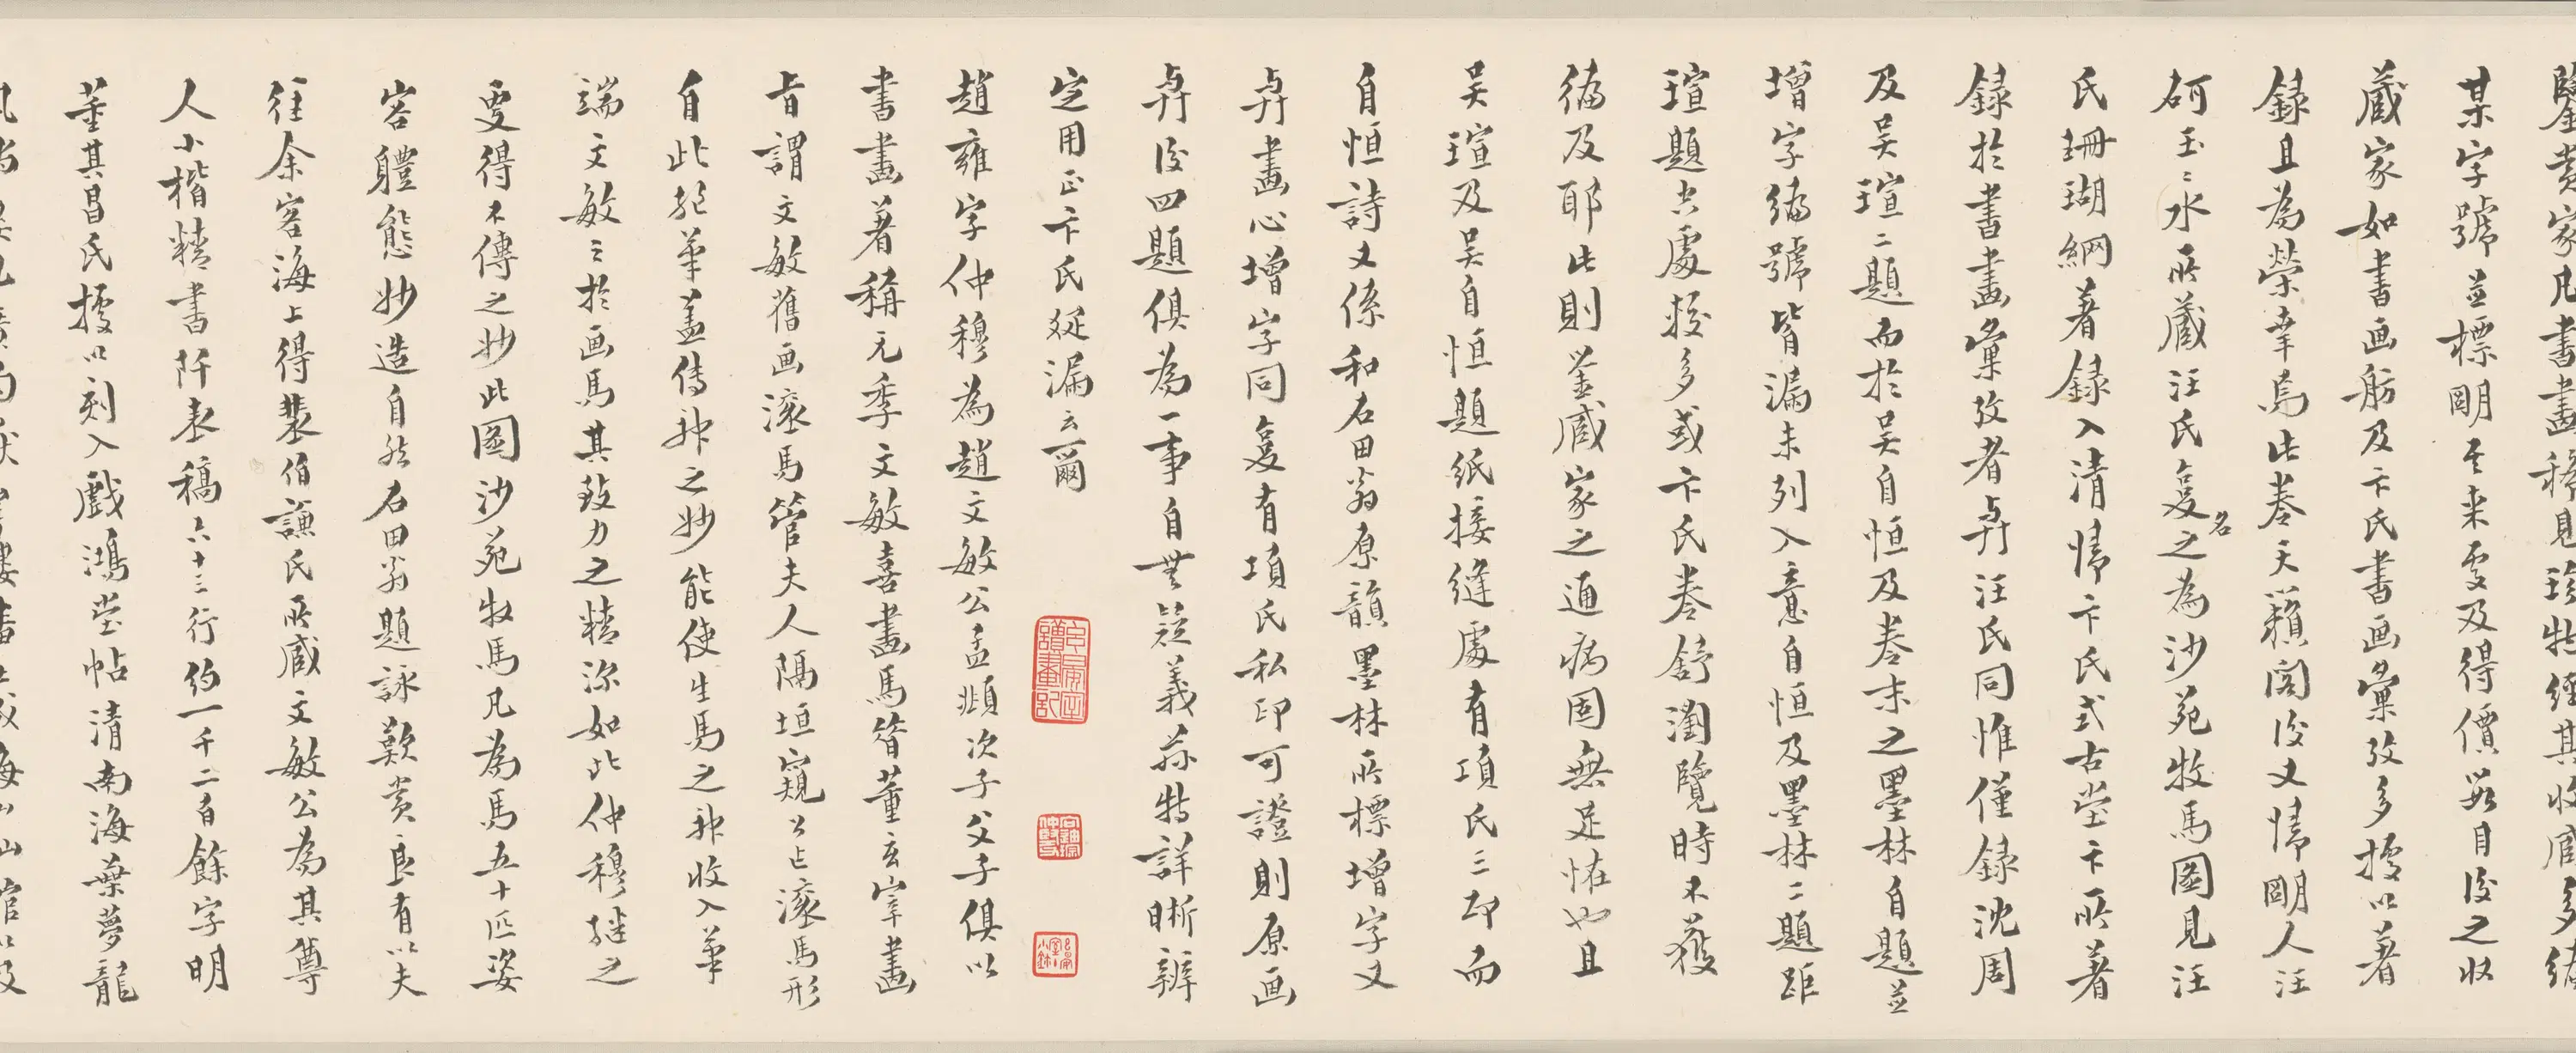 鑒賞家凡書畫稀見珍物經其收藏多編
某字號並標明其来處及得價数目後之收
藏家如書画舫及卞氏書画彙攷多據以著
錄且為榮幸焉此卷天籟閣後又情明人汪
砢玉玉水所藏汪氏名之為沙苑牧馬圖見汪
氏珊瑚網著録入清情卞氏式古堂卞所著
録於書畫彙攷者與汪氏同惟僅録沈周
及吴瑄二題而於吴自恒及卷末之墨林自題並
增字編號皆漏未列入意自恒及墨林二題距
瑄題尖處較多或卞氏卷舒瀏覽時不獲
徧及耶此則鑒藏家之通病固無足怪也且
吴瑄及吴自恒題紙接縫處有項氏三印而
自恒詩又係和石田翁原韻墨林所標增字又
與畫心增字同复有項氏私印可證則原画
與後四題俱為一事自無疑義茲特詳晰辨
定用正卞氏疑漏云爾
趙雍字仲穆為趙文敏公孟頫次子父子俱以
書畫著稱元季文敏喜畫馬簪董玄宰畫
旨謂文敏舊画滚馬管夫人隔垣窺公占滚馬形
自此絕筆蓋傳神之妙能使生馬之神收入筆
端文敏之於画馬其致力之精深如此仲穆繼之
更得不傳之妙此圖沙苑牧馬凡為馬五十匹姿
容軆態妙造自然石田翁題詠歎賞良有以夫
往余客海上得裴伯謙氏所藏文敏公為其尊
人小楷精書阡表稿六十三行約一千二百餘字明
董其昌氏據以刻入戲鴻堂帖清南海葉夢龍